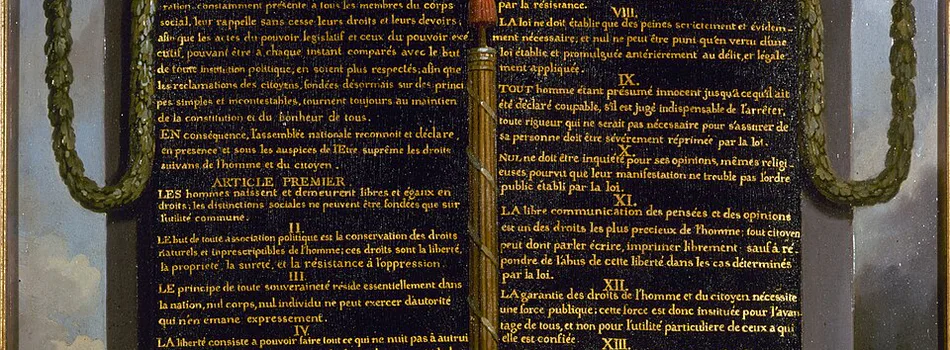 ration, constamment présente a tous les membres du corps
social, leur rappelle sans cesse leurs droits et leurs devoirs;
afin que les actes du pouvoir législatif et ceux du pouvoir exé
cutif, pouvant être à chaque instant comparés avec le but
de toute institution politique, en soient plus respectés; afin que
les réclamations des citoyens, fondées désormais sur des princi
pes simples et incontestables, tournent toujours au maintien
de la constitution et du bonheur de tous.
EN conséquence, l'assemblée nationale reconnoit et déclare,
en presence et sous les auspices de l'Etre suprême les droits
suivans de l'homme et du citoyen.
ARTICLE PREMIER
LES hommes naissent et demeurent libres et égaux en
droits; les distinctions sociales ne peuvent être fondées que sur
l'utilité commune.
II.
LE but de toute association politique est la conservation des droits
naturels et inprescriptibles de l'homme; ces droits sont la liberté,
la propriete, la sureté, et la résistance à l'oppression.
III.
LE principe de toute souveraineté réside essentiellement dans
la nation, nul corps, nul individu ne peut exercer d'autorité
qui n'en émane expressement.
IV.
LA liberté consiste a pouvoir faire tout ce qui ne nuit pas à autrui
par la résistance.
VIII.
LA loi ne doit établir que des peines strictement et éviden-
ment nécessaire, et nul ne peut être puni qu'en vertu d'une
loi établie et promulguée antérierement au délit, et légale-
ment appliquée.
IX.
TOUT homme étant présumé innocent jusqu'à ce qu'il ait
été déclaré coupable, s'il est jugé indispensable de l'arrêter,
toute rigueur qui ne serait pas nécessaire pour s'assurer de
sa personne doit être sévérement réprimée par la loi.
X.
NUL ne doit être inquiété pour ses opinions, mêmes religi-
euses pourvu que leur manifestation ne trouble pas l'ordre
public établi par la loi.
XI.
LA libre communication des pensées et des opinions
est un des droits les plus precieux de l'homme; tout citoyen
peut donc parler écrire, imprimer librement sauf à ré
pondre de l'abus de cette liberté dans les cas déterminés
par la loi.
XII.
LA garantie des droits de l'homme et du citoyen nécessite
une force publique; cette force est donc instituée pour l'avan
tage de tous, et non pour l'utilité particuliere de ceux a qui
elle est confiée.
XIII.